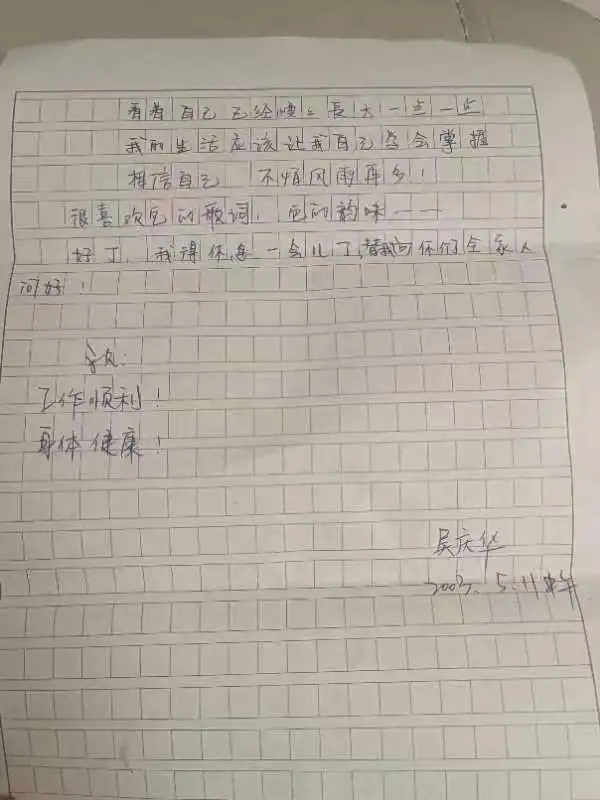 看着自己已经慢慢長大一点一点
我的生活应该让我自己学会掌握
相信自己 不怕风雨再多！
很喜欢它的歌词，它的韵味——
好了，我得休息一会儿了，替我向你们全家人
问好！
祝：
工作顺利！
身体健康！
吴庆华
2003. 5.11